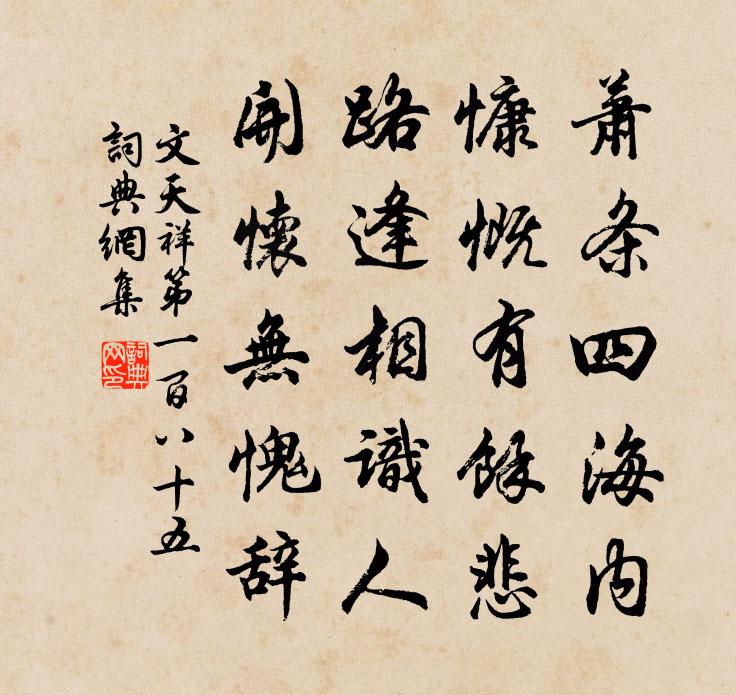 萧条四海内
慷慨有餘悲
路逢相識人
開懷無愧辞
文天祥第一百八十五
詞典網集
詞典网印